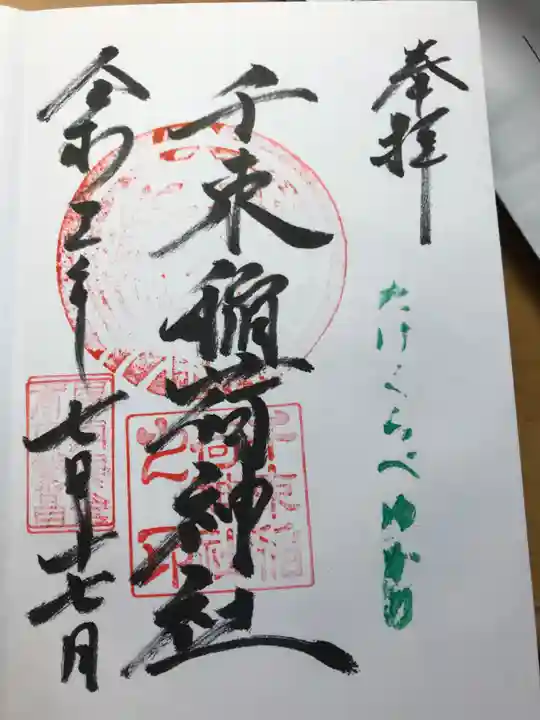 奉拝
たけくらべゆかり
千束稲荷神社
令和三年七月十七日